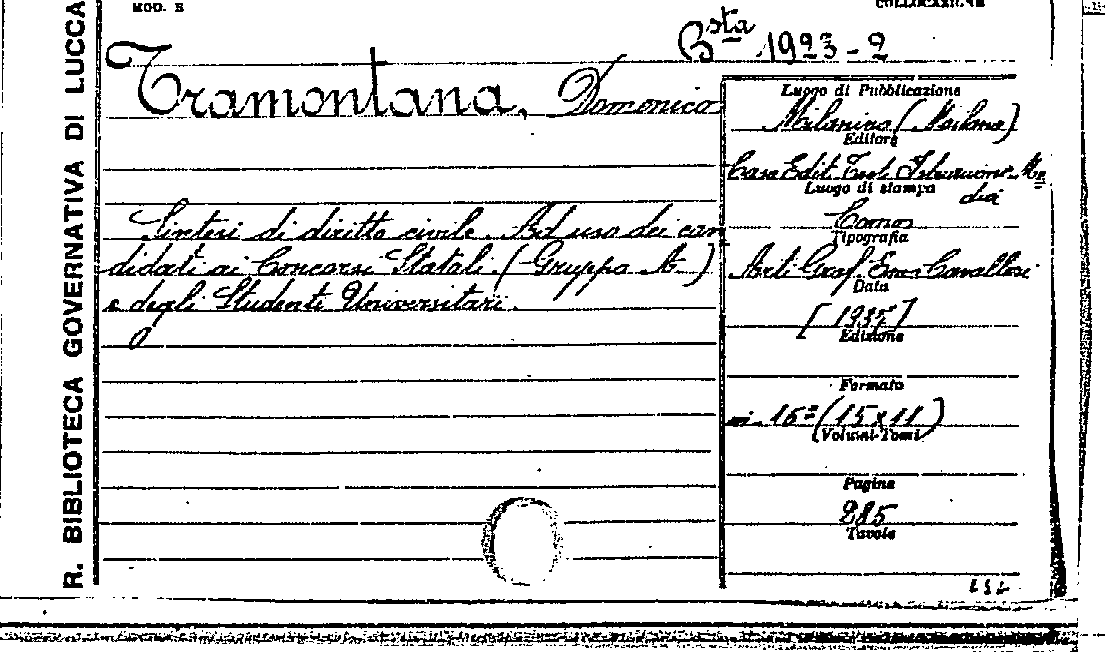 MOD. E
COLLOCAZIONE
R. BIBLIOTECA GOVERNATIVA DI LUCCA
Bsta 1923-2
Tramontana, Domenico
Sintesi di diritto civile. Ad uso dei can
didati ai Concorsi Statali. (Gruppo A.)
e degli Studenti Universitari.
Luogo di Pubblicazione
Milanino (Milano)
Editore
Casa Edit. Istruzione Me
dia
Luogo di stampa
Como
Tipografia
Arti Graf. Cavalleri
Data
[1935]
Edizione
Formato
in-16º (15x11)
Volumi-Tomi
Pagine
285
Tavole